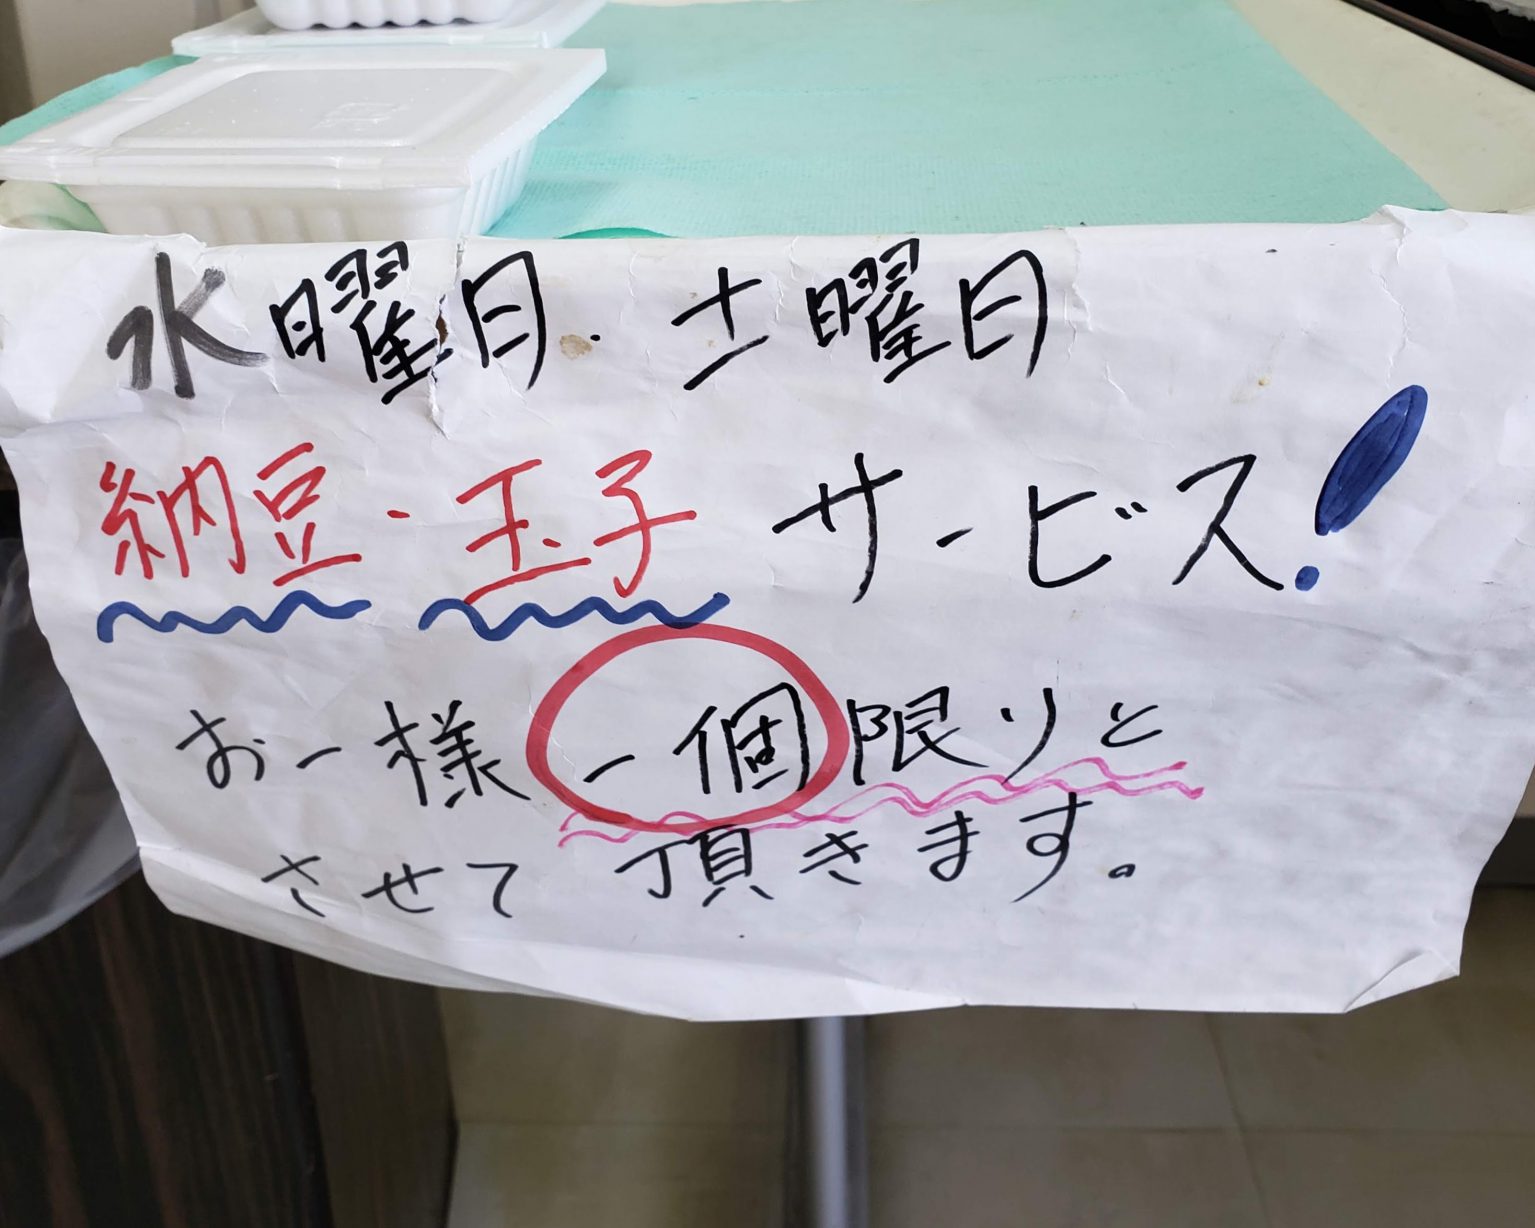 水曜日．土曜日
納豆・玉子 サービス！
お一様 一個限りと
させて頂きます。